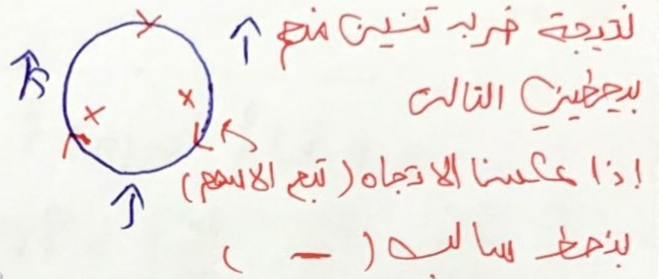 نتيجة ضرب تنين منهم
بيعطيني التالت
اذا عكسنا الاتجاه (تبع الاسهم)
بنحط سالب ( — )